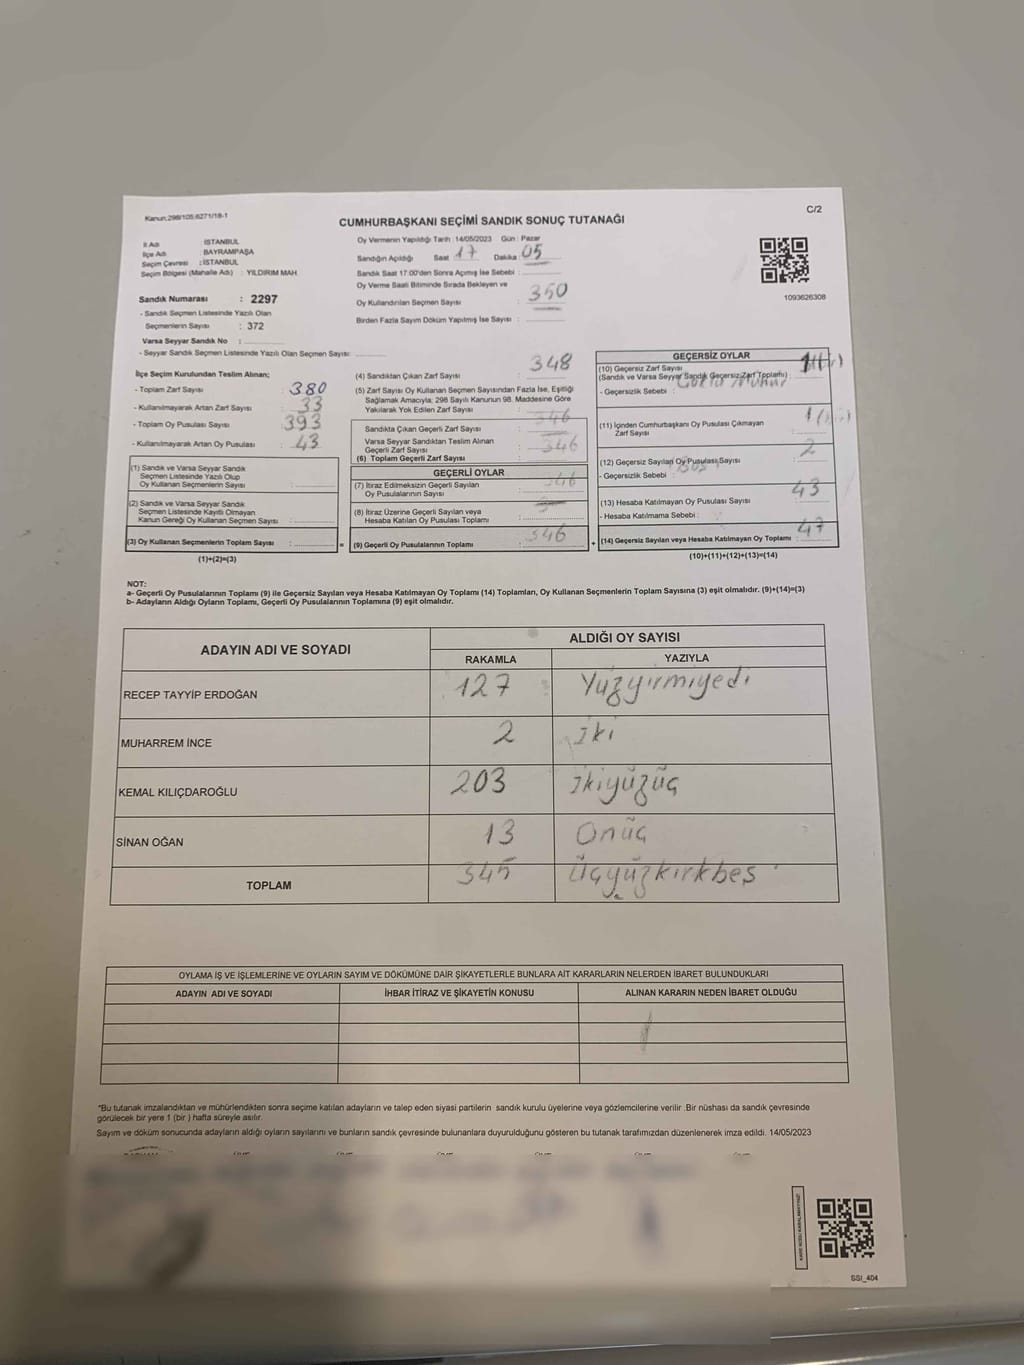 Kanun:298/105:6271/18-1
C/2
CUMHURBAŞKANI SEÇİMİ SANDIK SONUÇ TUTANAĞI
İl Adı : İSTANBUL
İlçe Adı : BAYRAMPAŞA
Seçim Çevresi : İSTANBUL
Seçim Bölgesi (Mahalle Adı) : YILDIRIM MAH
Sandık Numarası : 2297
- Sandık Seçmen Listesinde Yazılı Olan
Seçmenlerin Sayısı : 372
Varsa Seyyar Sandık No :
- Seyyar Sandık Seçmen Listesinde Yazılı Olan Seçmen Sayısı:
Oy Vermenin Yapıldığı Tarih : 14/05/2023 Gün : Pazar
Sandığın Açıldığı Saat 17 Dakika : 05
Sandık Saat 17.00'den Sonra Açımış İse Sebebi :
Oy Verme Saati Bitiminde Sırada Bekleyen ve
Oy Kullandırılan Seçmen Sayısı : 350
Birden Fazla Sayım Döküm Yapılmış İse Sayısı :
1093626308
İlçe Seçim Kurulundan Teslim Alınan;
- Toplam Zarf Sayısı : 380
- Kullanılmayarak Artan Zarf Sayısı : 33
- Toplam Oy Pusulası Sayısı : 393
- Kullanılmayarak Artan Oy Pusulası : 43
(1) Sandık ve Varsa Seyyar Sandık
Seçmen Listesinde Yazılı Olup
Oy Kullanan Seçmenlerin Sayısı :
(2) Sandık ve Varsa Seyyar Sandık
Seçmen Listesinde Kayıtlı Olmayan
Kanun Gereği Oy Kullanan Seçmen Sayısı :
(3) Oy Kullanan Seçmenlerin Toplam Sayısı : =
(1)+(2)=(3)
(4) Sandıktan Çıkan Zarf Sayısı : 348
(5) Zarf Sayısı Oy Kullanan Seçmen Sayısından Fazla İse, Eşitliği
Sağlamak Amacıyla; 298 Sayılı Kanunun 98. Maddesine Göre
Yakılarak Yok Edilen Zarf Sayısı :
Sandıkta Çıkan Geçerli Zarf Sayısı : 346
Varsa Seyyar Sandıktan Teslim Alınan
Geçerli Zarf Sayısı :
(6) Toplam Geçerli Zarf Sayısı : 346
GEÇERLİ OYLAR
(7) İtiraz Edilmeksizin Geçerli Sayılan
Oy Pusulalarının Sayısı : 346
(8) İtiraz Üzerine Geçerli Sayılan veya
Hesaba Katılan Oy Pusulası Toplamı :
(9) Geçerli Oy Pusulalarının Toplamı : 346 +
GEÇERSİZ OYLAR
(10) Geçersiz Zarf Sayısı
(Sandık ve Varsa Seyyar Sandık Geçersiz Zarf Toplamı) :
- Geçersizlik Sebebi :
(11) İçinden Cumhurbaşkanı Oy Pusulası Çıkmayan
Zarf Sayısı : 1
(12) Geçersiz Sayılan Oy Pusulası Sayısı : 2
- Geçersizlik Sebebi :
(13) Hesaba Katılmayan Oy Pusulası Sayısı : 43
- Hesaba Katılmama Sebebi :
(14) Geçersiz Sayılan veya Hesaba Katılmayan Oy Toplamı : 47
(10)+(11)+(12)+(13)=(14)
NOT:
a- Geçerli Oy Pusulalarının Toplamı (9) ile Geçersiz Sayılan veya Hesaba Katılmayan Oy Toplamı (14) Toplamları, Oy Kullanan Seçmenlerin Toplam Sayısına (3) eşit olmalıdır. (9)+(14)=(3)
b- Adayların Aldığı Oyların Toplamı, Geçerli Oy Pusulalarının Toplamına (9) eşit olmalıdır.
ADAYIN ADI VE SOYADI
ALDIĞI OY SAYISI
RAKAMLA YAZIYLA
RECEP TAYYİP ERDOĞAN 127 Yüzyirmiyedi
MUHARREM İNCE 2 İki
KEMAL KILIÇDAROĞLU 203 İkiyüzüç
SİNAN OĞAN 13 Onüç
TOPLAM 345 Üçyüzkırkbeş
OYLAMA İŞ VE İŞLEMLERİNE VE OYLARIN SAYIM VE DÖKÜMÜNE DAİR ŞİKAYETLERLE BUNLARA AİT KARARLARIN NELERDEN İBARET BULUNDUKLARI
ADAYIN ADI VE SOYADI İHBAR İTİRAZ VE ŞİKAYETİN KONUSU ALINAN KARARIN NEDEN İBARET OLDUĞU
*Bu tutanak imzalandıktan ve mühürlendikten sonra seçime katılan adayların ve talep eden siyasi partilerin sandık kurulu üyelerine veya gözlemcilerine verilir .Bir nüshası da sandık çevresinde
görülecek bir yere 1 (bir ) hafta süreyle asılır.
Sayım ve döküm sonucunda adayların aldığı oyların sayılarını ve bunların sandık çevresinde bulunanlara duyurulduğunu gösteren bu tutanak tarafımızdan düzenlenerek imza edildi. 14/05/2023
SSI_404